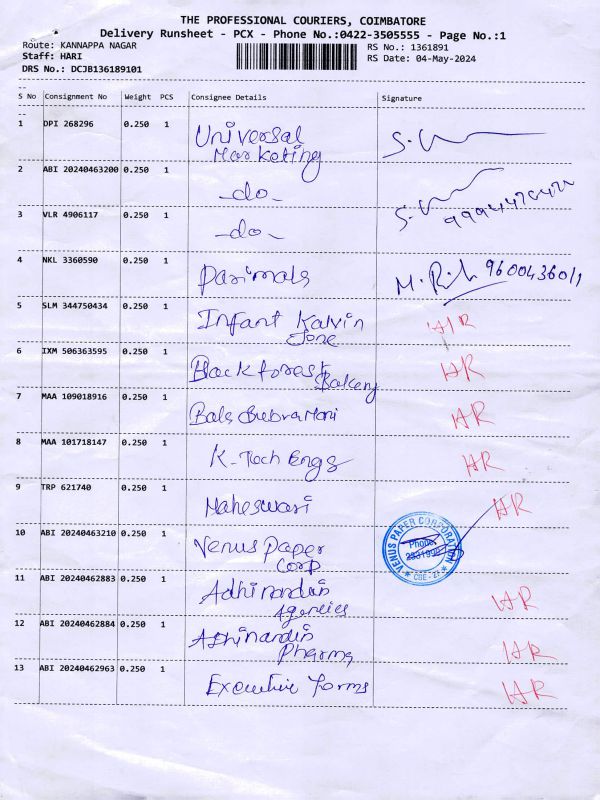 THE PROFESSIONAL COURIERS, COIMBATORE
Delivery Runsheet - PCX - Phone No.:0422-3505555 - Page No.:1
Route: KANNAPPA NAGAR RS No.: 1361891
Staff: HARI RS Date: 04-May-2024
DRS No.: DCJB136189101
S No Consignment No Weight PCS Consignee Details Signature
1 DPI 268296 0.250 1 Universal
Marketing
2 ABI 20240463200 0.250 1 -do-
3 VLR 4906117 0.250 1 -do-
4 NKL 3360590 0.250 1 Parimals 9600436011
5 SLM 344750434 0.250 1 Infant Kalvin HR
Jone
6 IXM 506363595 0.250 1 Blackforest HR
Bakery
7 MAA 109018916 0.250 1 Bala Subramani HR
8 MAA 101718147 0.250 1 K-Tech Engs HR
9 TRP 621740 0.250 1 Maheswari HR
10 ABI 20240463210 0.250 1 Venus Paper
Corp
VENUS PAPER CORPORATION
Phone:
CBE - 2
11 ABI 20240462883 0.250 1 Adhinandan HR
Agencies
12 ABI 20240462884 0.250 1 Adhinandan
Pharma HR
13 ABI 20240462963 0.250 1 Executive Forms HR